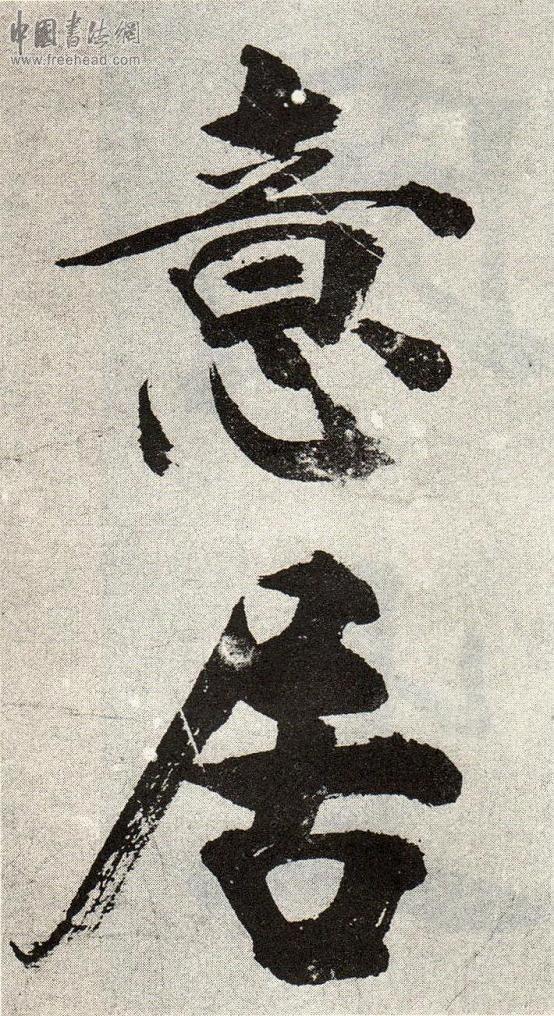 中國书法網
www.freehead.com
意居